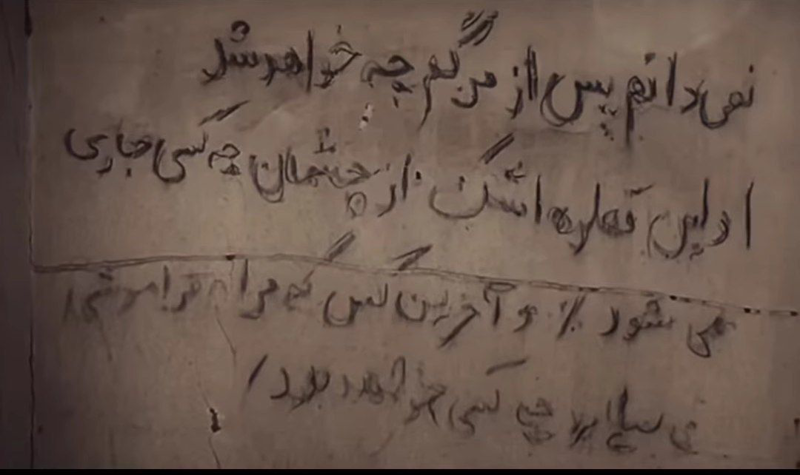 نمی دانم پس از مرگم چه خواهد شد
اولین قطره اشک از چشمان چه کسی جاری
می شود / و آخرین کس که مرا به فراموشی
می سپارد چه کسی خواهد بود /